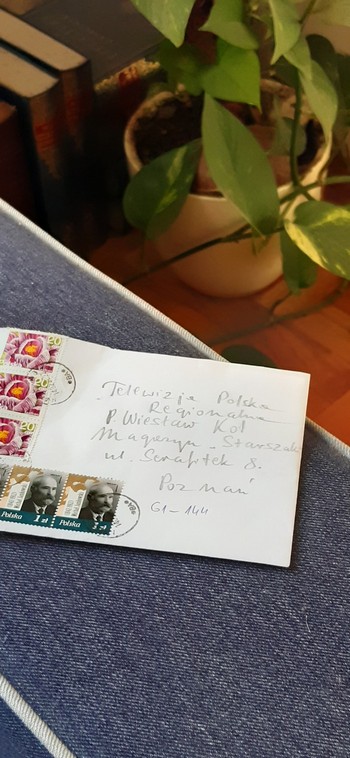 20
20
20
Telewizja Polska
Regionalna
P. Wiesław Kot
Magazyn "Starszaki
ul. Serafitek 8.
Poznań
61-144
Polska 1 zł
Polska 1 zł